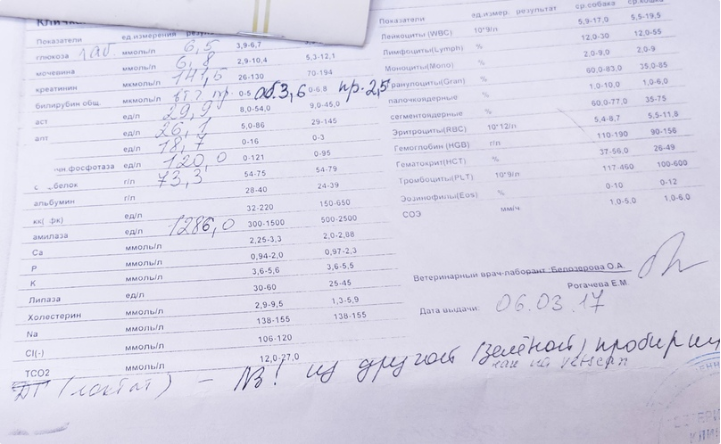 Показатели ед.измерения
глюкоза ммоль/л 6,5 3,9-6,7
мочевина ммоль/л 6,8 2,9-10,4 5,3-12,1
креатинин мкмоль/л 141,6 26-130 70-194
билирубин общ. мкмоль/л 0-5 об.3,6 0-6,8 пр.2,5
аст ед/л 29,9 8,0-54,0 9,0-45,0
алт ед/л 26,1 5,0-86 29-145
ед/л 18,7 0-16 0-3
фосфотаза ед/л 120,0 0-121 0-95
белок г/л 73,3 54-75 54-79
альбумин г/л 28-40 24-39
кк( фк) ед/л 32-220 150-650
амилаза ед/л 1286,0 300-1500 500-2500
Ca ммоль/л 2,25-3,3 2,0-2,08
P ммоль/л 0,94-2,0 0,97-2,3
K ммоль/л 3,6-5,6 3,6-5,5
Липаза ед/л 30-60 25-45
Холестерин ммоль/л 2,9-9,5 1,3-5,9
Na ммоль/л 138-155 138-155
Cl(-) ммоль/л 106-120
TCO2 ммоль/л 12,0-27,0
Показатели ед.измер. результат ср.собака ср.кошка
Лейкоциты (WBC) 10*9/л 5,9-17,0 5,5-19,5
Лимфоциты(Lymph) % 12,0-30 12,0-55
Моноциты(Mono) % 2,0-9,0 2,0-9
Гранулоциты(Gran) % 60,0-83,0 35,0-55
палочкоядерные % 1,0-10,0 1,0-6,0
сегментоядерные % 60,0-77,0 35-75
Эритроциты(RBC) 10*12/л 5,4-8,7 5,5-11,8
Гемоглобин (HGB) г/л 110-190 90-156
Гематокрит(HCT) % 37-56,0 26-49
Тромбоциты(PLT) 10*9/л 117-460 100-600
Эозинофилы(Eos) % 0-10 0-12
СОЭ мм/ч 1,0-5,0 1,0-6,0
Ветеринарный врач-лаборант Белозерова О.А.
Рогачева Е.М.
Дата выдачи: 06.03.17
(лактат) - NB! из другой (зелёной) пробирки